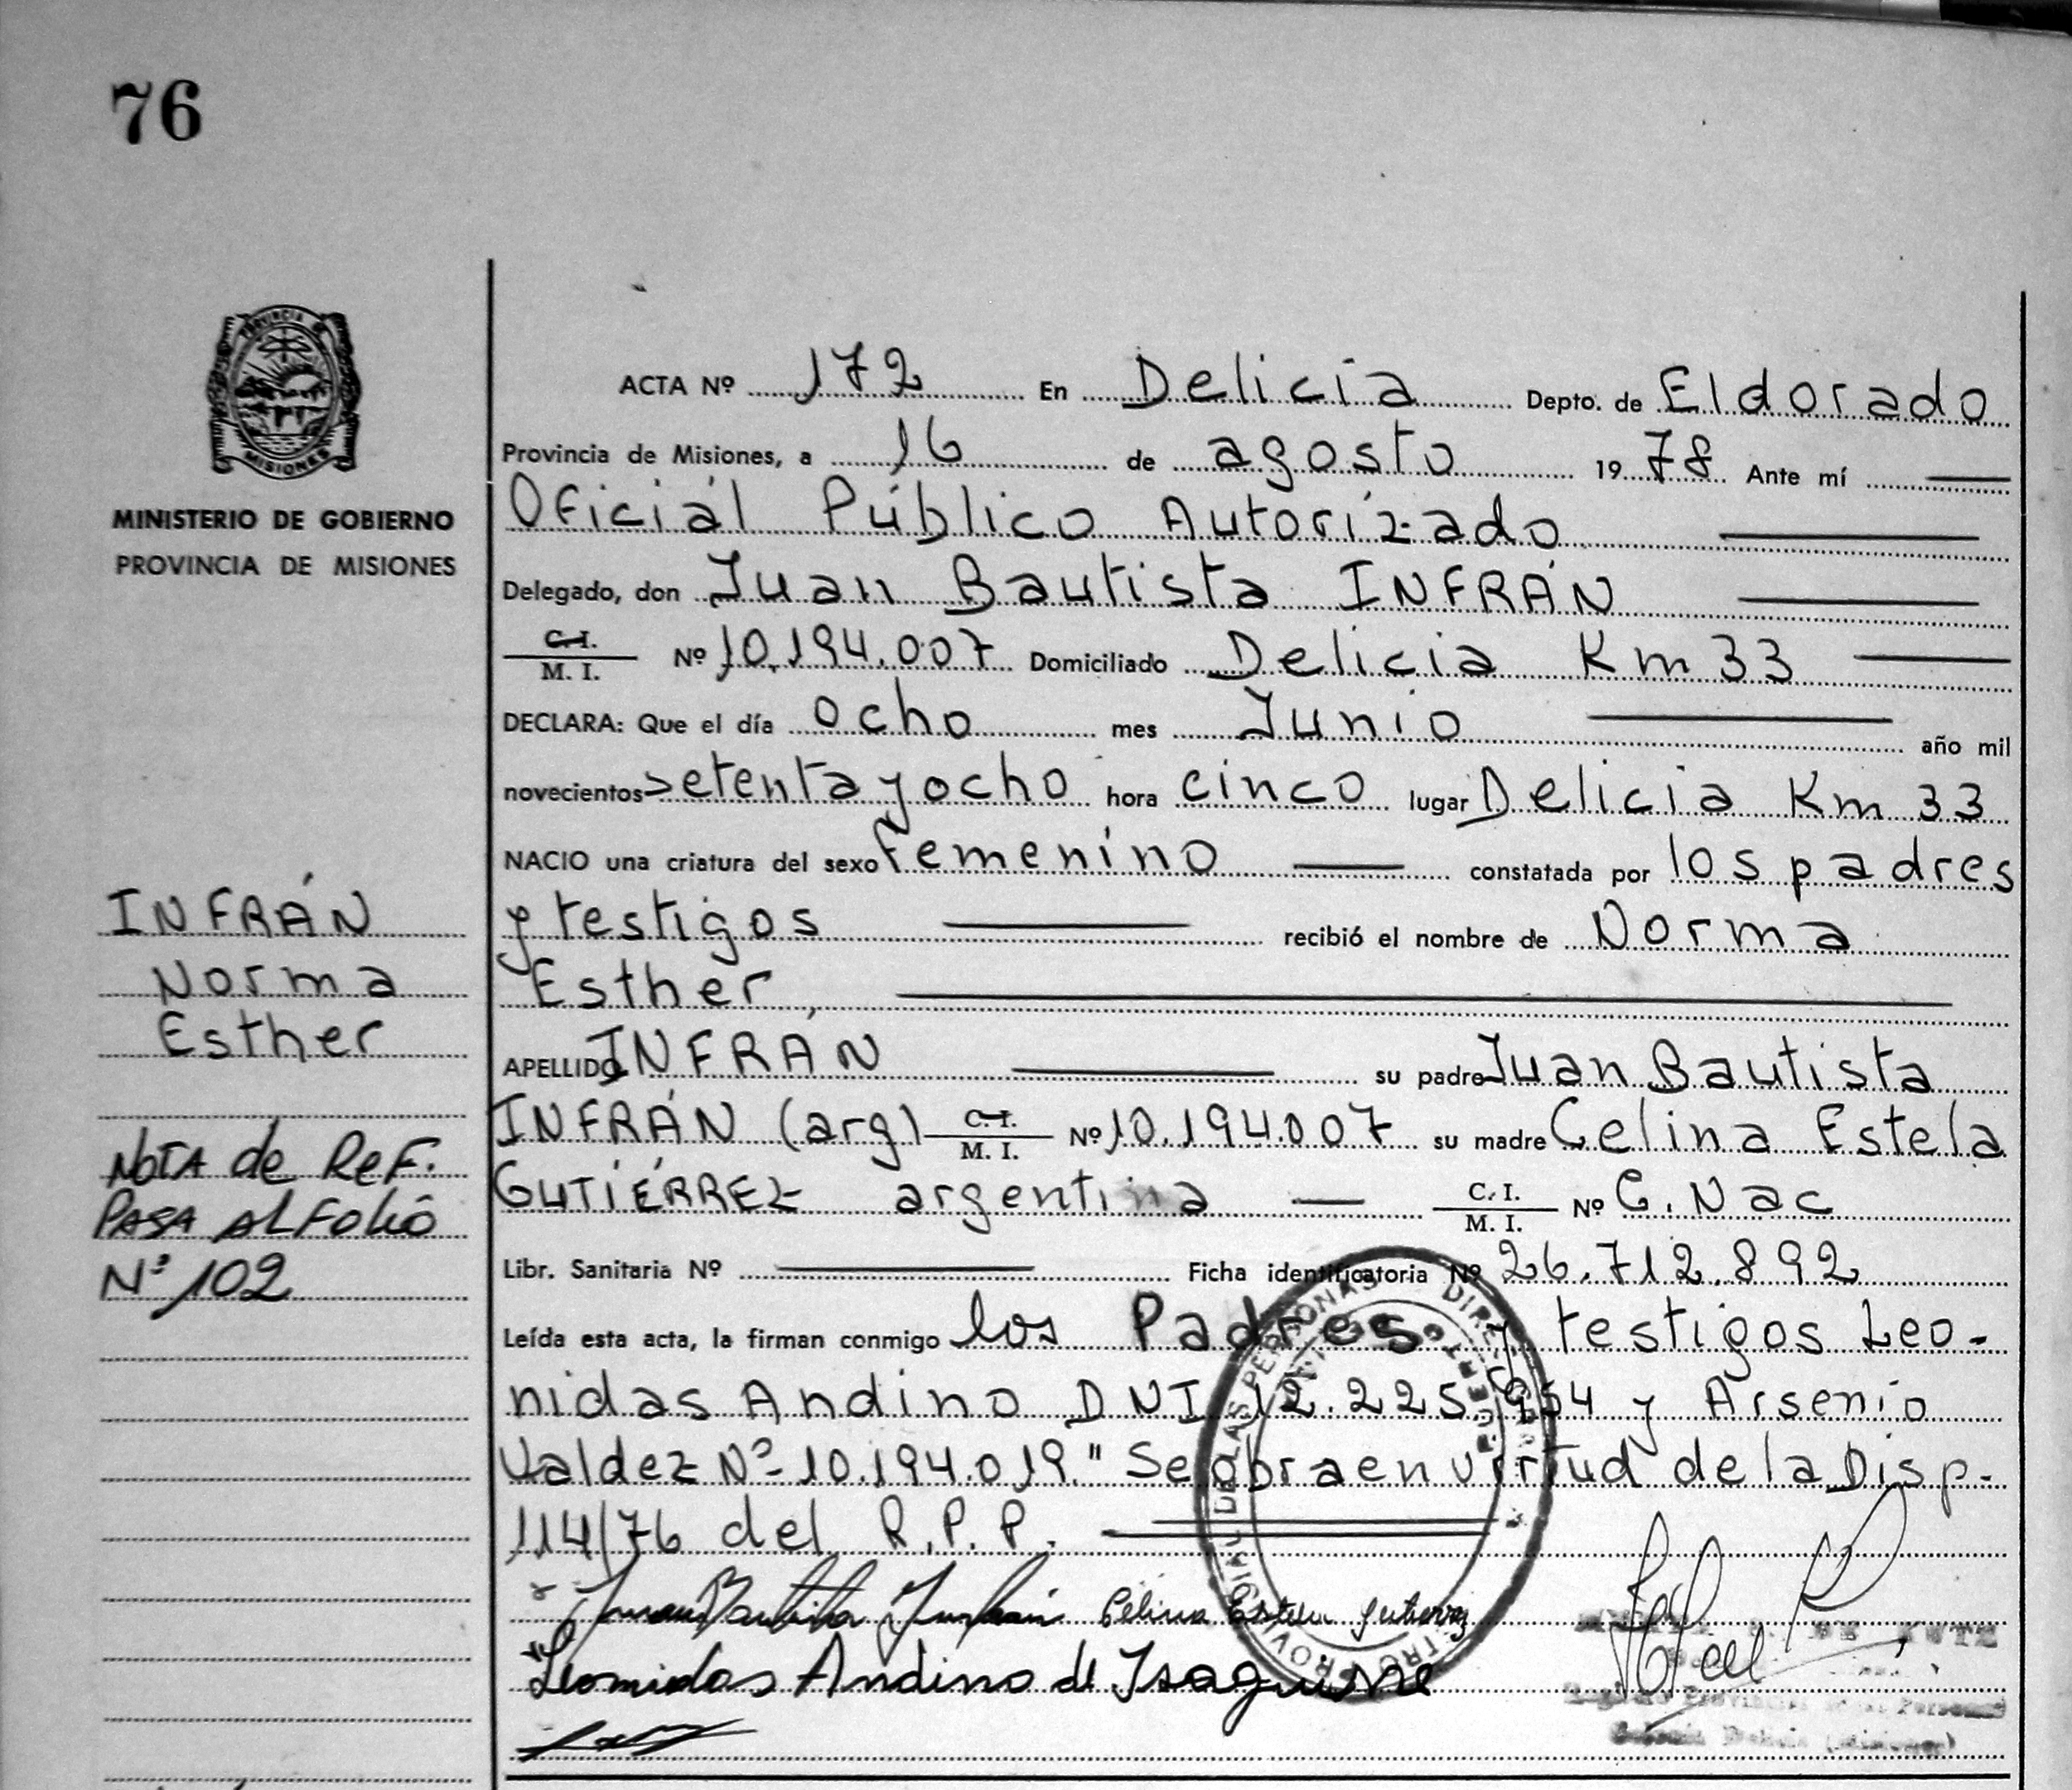 76
PROVINCIA DE
MISIONES
MINISTERIO DE GOBIERNO
PROVINCIA DE MISIONES
INFRÁN
Norma
Esther
NOTA de ReF.
PASA AL Folio
Nº 102
ACTA Nº 172 En Delicia Depto. de Eldorado
Provincia de Misiones, a 16 de agosto 1978 Ante mí
Oficial Público Autorizado
Delegado, don Juan Bautista INFRÁN
C.I.
M. I. Nº 10.194.007 Domiciliado Delicia Km 33
DECLARA: Que el día ocho mes Junio año mil
novecientos setenta y ocho hora cinco lugar Delicia Km 33
NACIO una criatura del sexo femenino constatada por los padres
y testigos recibió el nombre de Norma
Esther,
APELLIDO INFRÁN su padre Juan Bautista
INFRÁN (arg) C.I. M. I. Nº 10.194.007 su madre Celina Estela
GUTIÉRREZ argentina C. I. M. I. Nº C. Nac
Libr. Sanitaria Nº Ficha identificatoria Nº 26.712.892
Leída esta acta, la firman conmigo los Padres y testigos Leo-
nidas Andino DNI 12.225.954 y Arsenio
Valdez Nº 10.194.019." Se labra en virtud de la Disp.
114/76 del R.P.P.
Juan Bautista Infrán Celina Estela Gutierrez
Leonidas Andino de Isaguirre